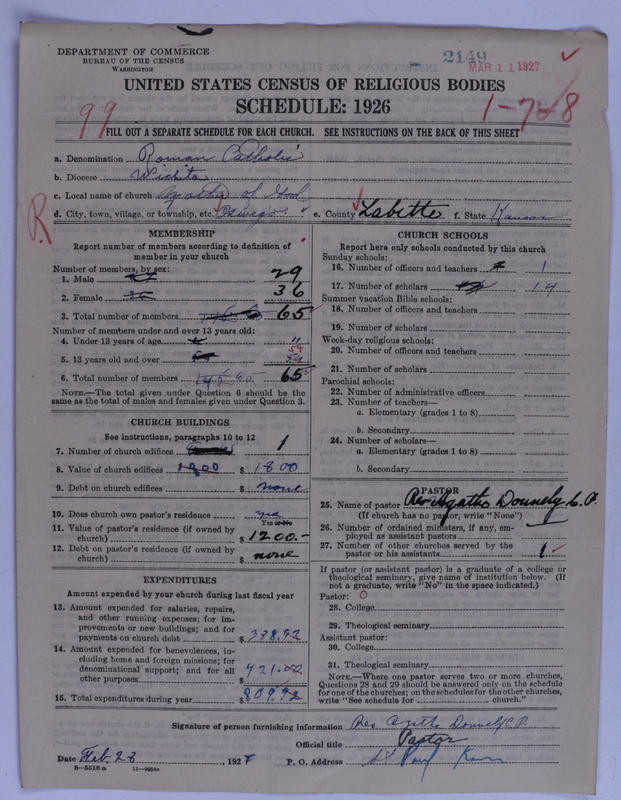 DEPARTMENT OF COMMERCE
BUREAU OF THE CENSUS
WASHINGTON
2149
MAR 11 1927
UNITED STATES CENSUS OF RELIGIOUS BODIES
SCHEDULE: 1926
99
1-7-8
FILL OUT A SEPARATE SCHEDULE FOR EACH CHURCH. SEE INSTRUCTIONS ON THE BACK OF THIS SHEET
a. Denomination Roman Catholic
b. Diocese Wichita
c. Local name of church of God
d. City, town, village, or township, etc. Oswego e. County Labette f. State Kansas
R
MEMBERSHIP
Report number of members according to definition of
member in your church
Number of members, by sex:
1. Male 29
2. Female 36
3. Total number of members 65
Number of members under and over 13 years old:
4. Under 13 years of age 11
5. 13 years old and over 54
6. Total number of members 65
NOTE.—The total given under Question 6 should be
the same as the total of males and females given under Question 3.
CHURCH BUILDINGS
See instructions, paragraphs 10 to 12
7. Number of church edifices 1
8. Value of church edifices $ 1800
9. Debt on church edifices $ none
10. Does church own pastor's residence yes
Yes or No
11. Value of pastor's residence (if owned by
church) $ 1200.-
12. Debt on pastor's residence (if owned by
church) $ none
EXPENDITURES
Amount expended by your church during last fiscal year
13. Amount expended for salaries, repairs,
and other running expenses; for im-
provements or new buildings; and for
payments on church debt $ 388.92
14. Amount expended for benevolences, in-
cluding home and foreign missions; for
denominational support; and for all
other purposes $ 421.00
15. Total expenditures during year $ 809.92
CHURCH SCHOOLS
Report here only schools conducted by this church
Sunday schools:
16. Number of officers and teachers 1
17. Number of scholars 14
Summer vacation Bible schools:
18. Number of officers and teachers
19. Number of scholars
Week-day religious schools:
20. Number of officers and teachers
21. Number of scholars
Parochial schools:
22. Number of administrative officers
23. Number of teachers—
a. Elementary (grades 1 to 8)
b. Secondary
24. Number of scholars—
a. Elementary (grades 1 to 8)
b. Secondary
PASTOR
25. Name of pastor Rev Agatho Donnely C.P.
(If church has no pastor, write "None")
26. Number of ordained ministers, if any, em-
ployed as assistant pastors
27. Number of other churches served by the
pastor or his assistants 1
If pastor (or assistant pastor) is a graduate of a college or
theological seminary, give name of institution below. (If
not a graduate, write "No" in the space indicated.)
Pastor: 0
28. College
29. Theological seminary
Assistant pastor:
30. College
31. Theological seminary
NOTE.—Where one pastor serves two or more churches,
Questions 28 and 29 should be answered only on the schedule
for one of the churches; on the schedules for the other churches,
write "See schedule for church."
Signature of person furnishing information Rev Agatho Donnely C.P.
Official title Pastor
Date Feb. 28, 1927 P. O. Address St Paul Kans
8—5518a 11—9984